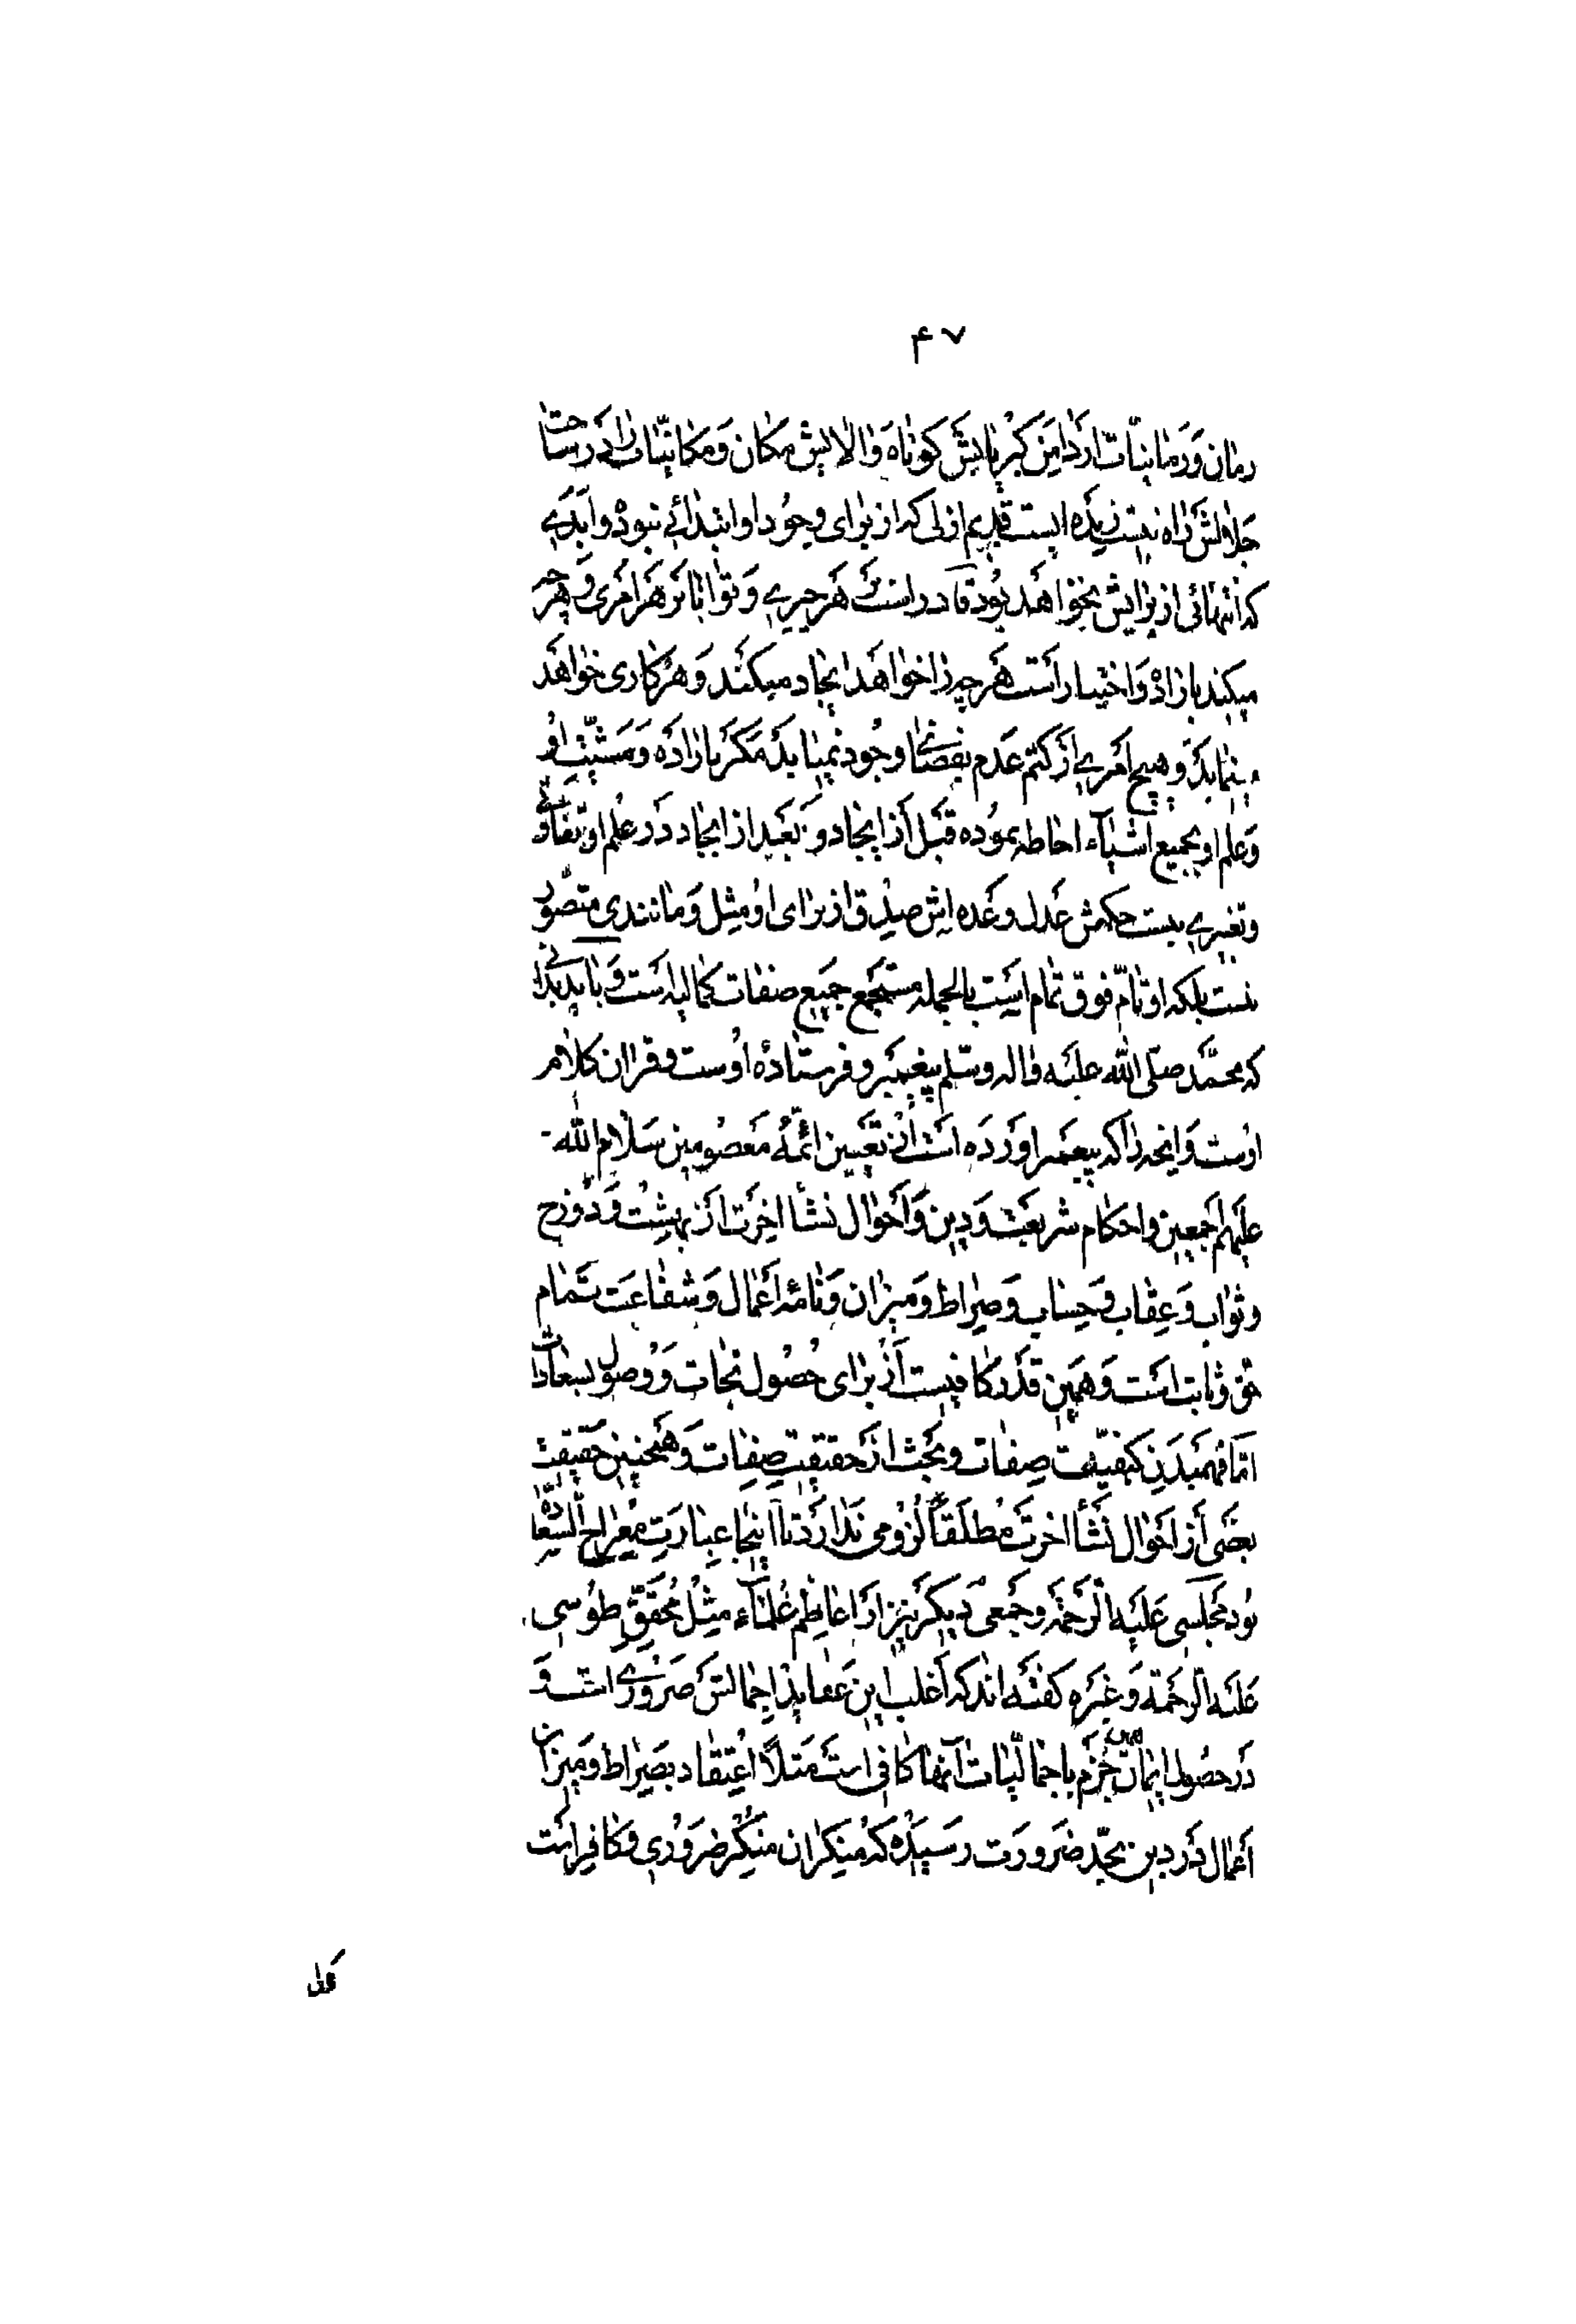 ۴۷
زمان و زمانیّات از دامن کبریایش کوتاه والایش مکان و مکانیّات را در ساحت
جلالش راه نیست زنده ایست قدیم ازلی که از برای وجود او ابتدائے نبوده و ابدے
که انتهائی از برایش نخواهد بود قادر است بر هر چیزے و توانا بر هر امری و هر چه
میکند باراده و اختیار است هر چه را خواهد ایجاد میکند و هر کاری خواهد
مینماید و هیچ امرے از کتم عدم بفضای وجود نمیاید مگر باراده و مشیّت او
و علم او بجمیع اشیاء احاطه نموده قبل از ایجاد و بعد از ایجاد در علم او تفاوتے
و تغیرے نیست حکمش عدل وعده اش صدق از برای او مثل و مانندی متصوّر
نیست بلکه او تامّ فوق تمام است بالجمله مستجمع جمیع صفات کمالیه است و باید بدانے
که محمّد صلّی الله علیه و اله و سلّم پیغمبر و فرستاده اوست و قران کلام
اوست و انچه را که پیغمبر اورده است از تعیین ائمّه معصومین سلام الله -
علیهم اجمعین و احکام شریعت و دین و احوال نشأ اخرت از بهشت و دوزخ
و ثواب و عقاب و حساب و صراط و میزان و نامه اعمال و شفاعت تمام
حق و ثابت است و همین قدر کافیست از برای حصول نجات و وصول بسعادات
امّا فهمیدن کیفیّت صفات و بحث از حقیقت صفات و همچنین حقیقت
بعضی از احوال نشأ اخرت مطلقاً لزومی ندارد تا اینجا عبارت معراج السّعاده
بود مجلسی علیه الرّحمة و جمعی دیگر نیز از اعاظم علماء مثل محقّق طوسی
علیه الرّحمة و غیره گفته اند که اغلب این عقاید اجمالش ضرورے است و
در حصول ایمان همین جزم باجمالیّات آنها کافی است مثلاً اعتقاد بصراط و میزان
اعمال در دین بحدّ ضرورت رسیده که منکران منکر ضروری و کافر است